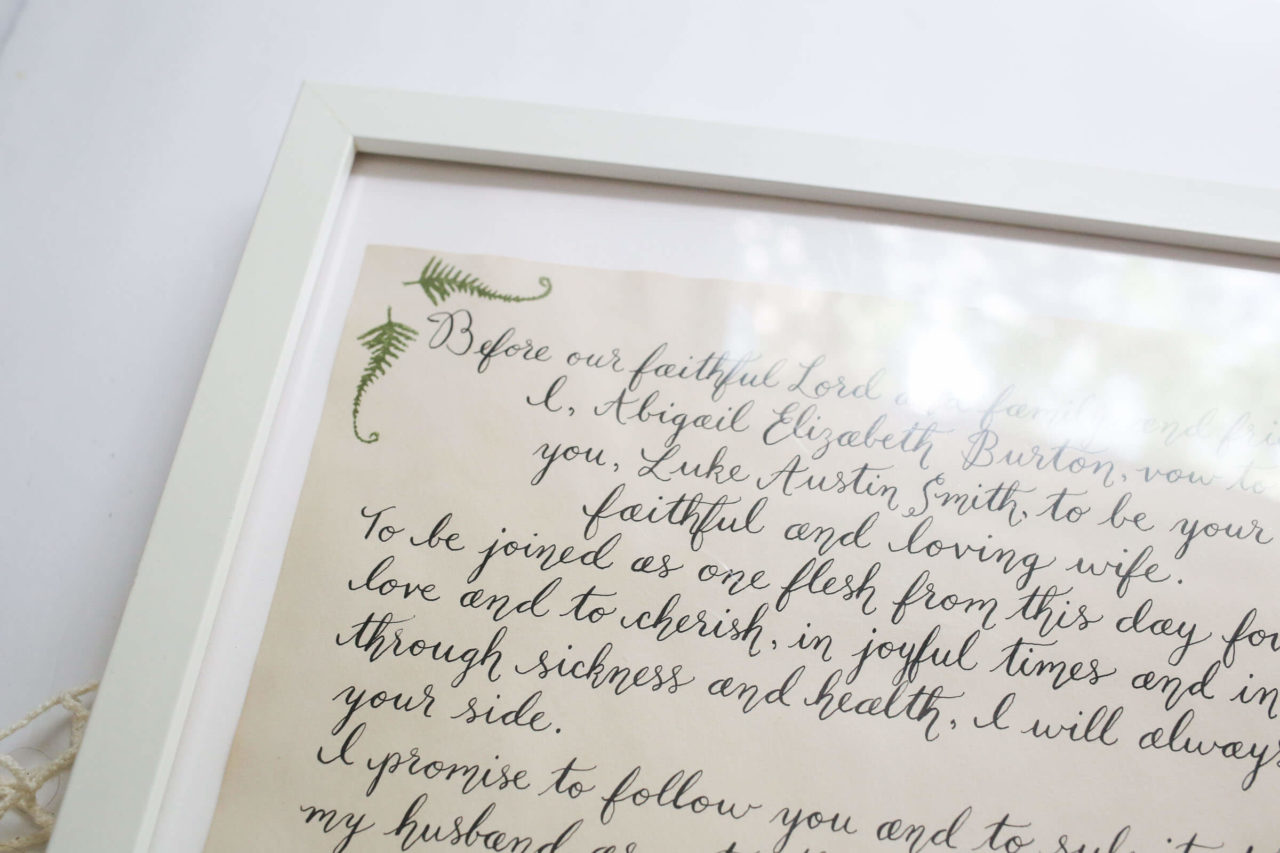 Before our faithful Lord and family and
I, Abigail Elizabeth Burton, vow to
you, Luke Austin Smith, to be your
faithful and loving wife.
To be joined as one flesh from this day
love and to cherish, in joyful times and in
through sickness and health, I will always
your side.
I promise to follow you and to submit
my husband as